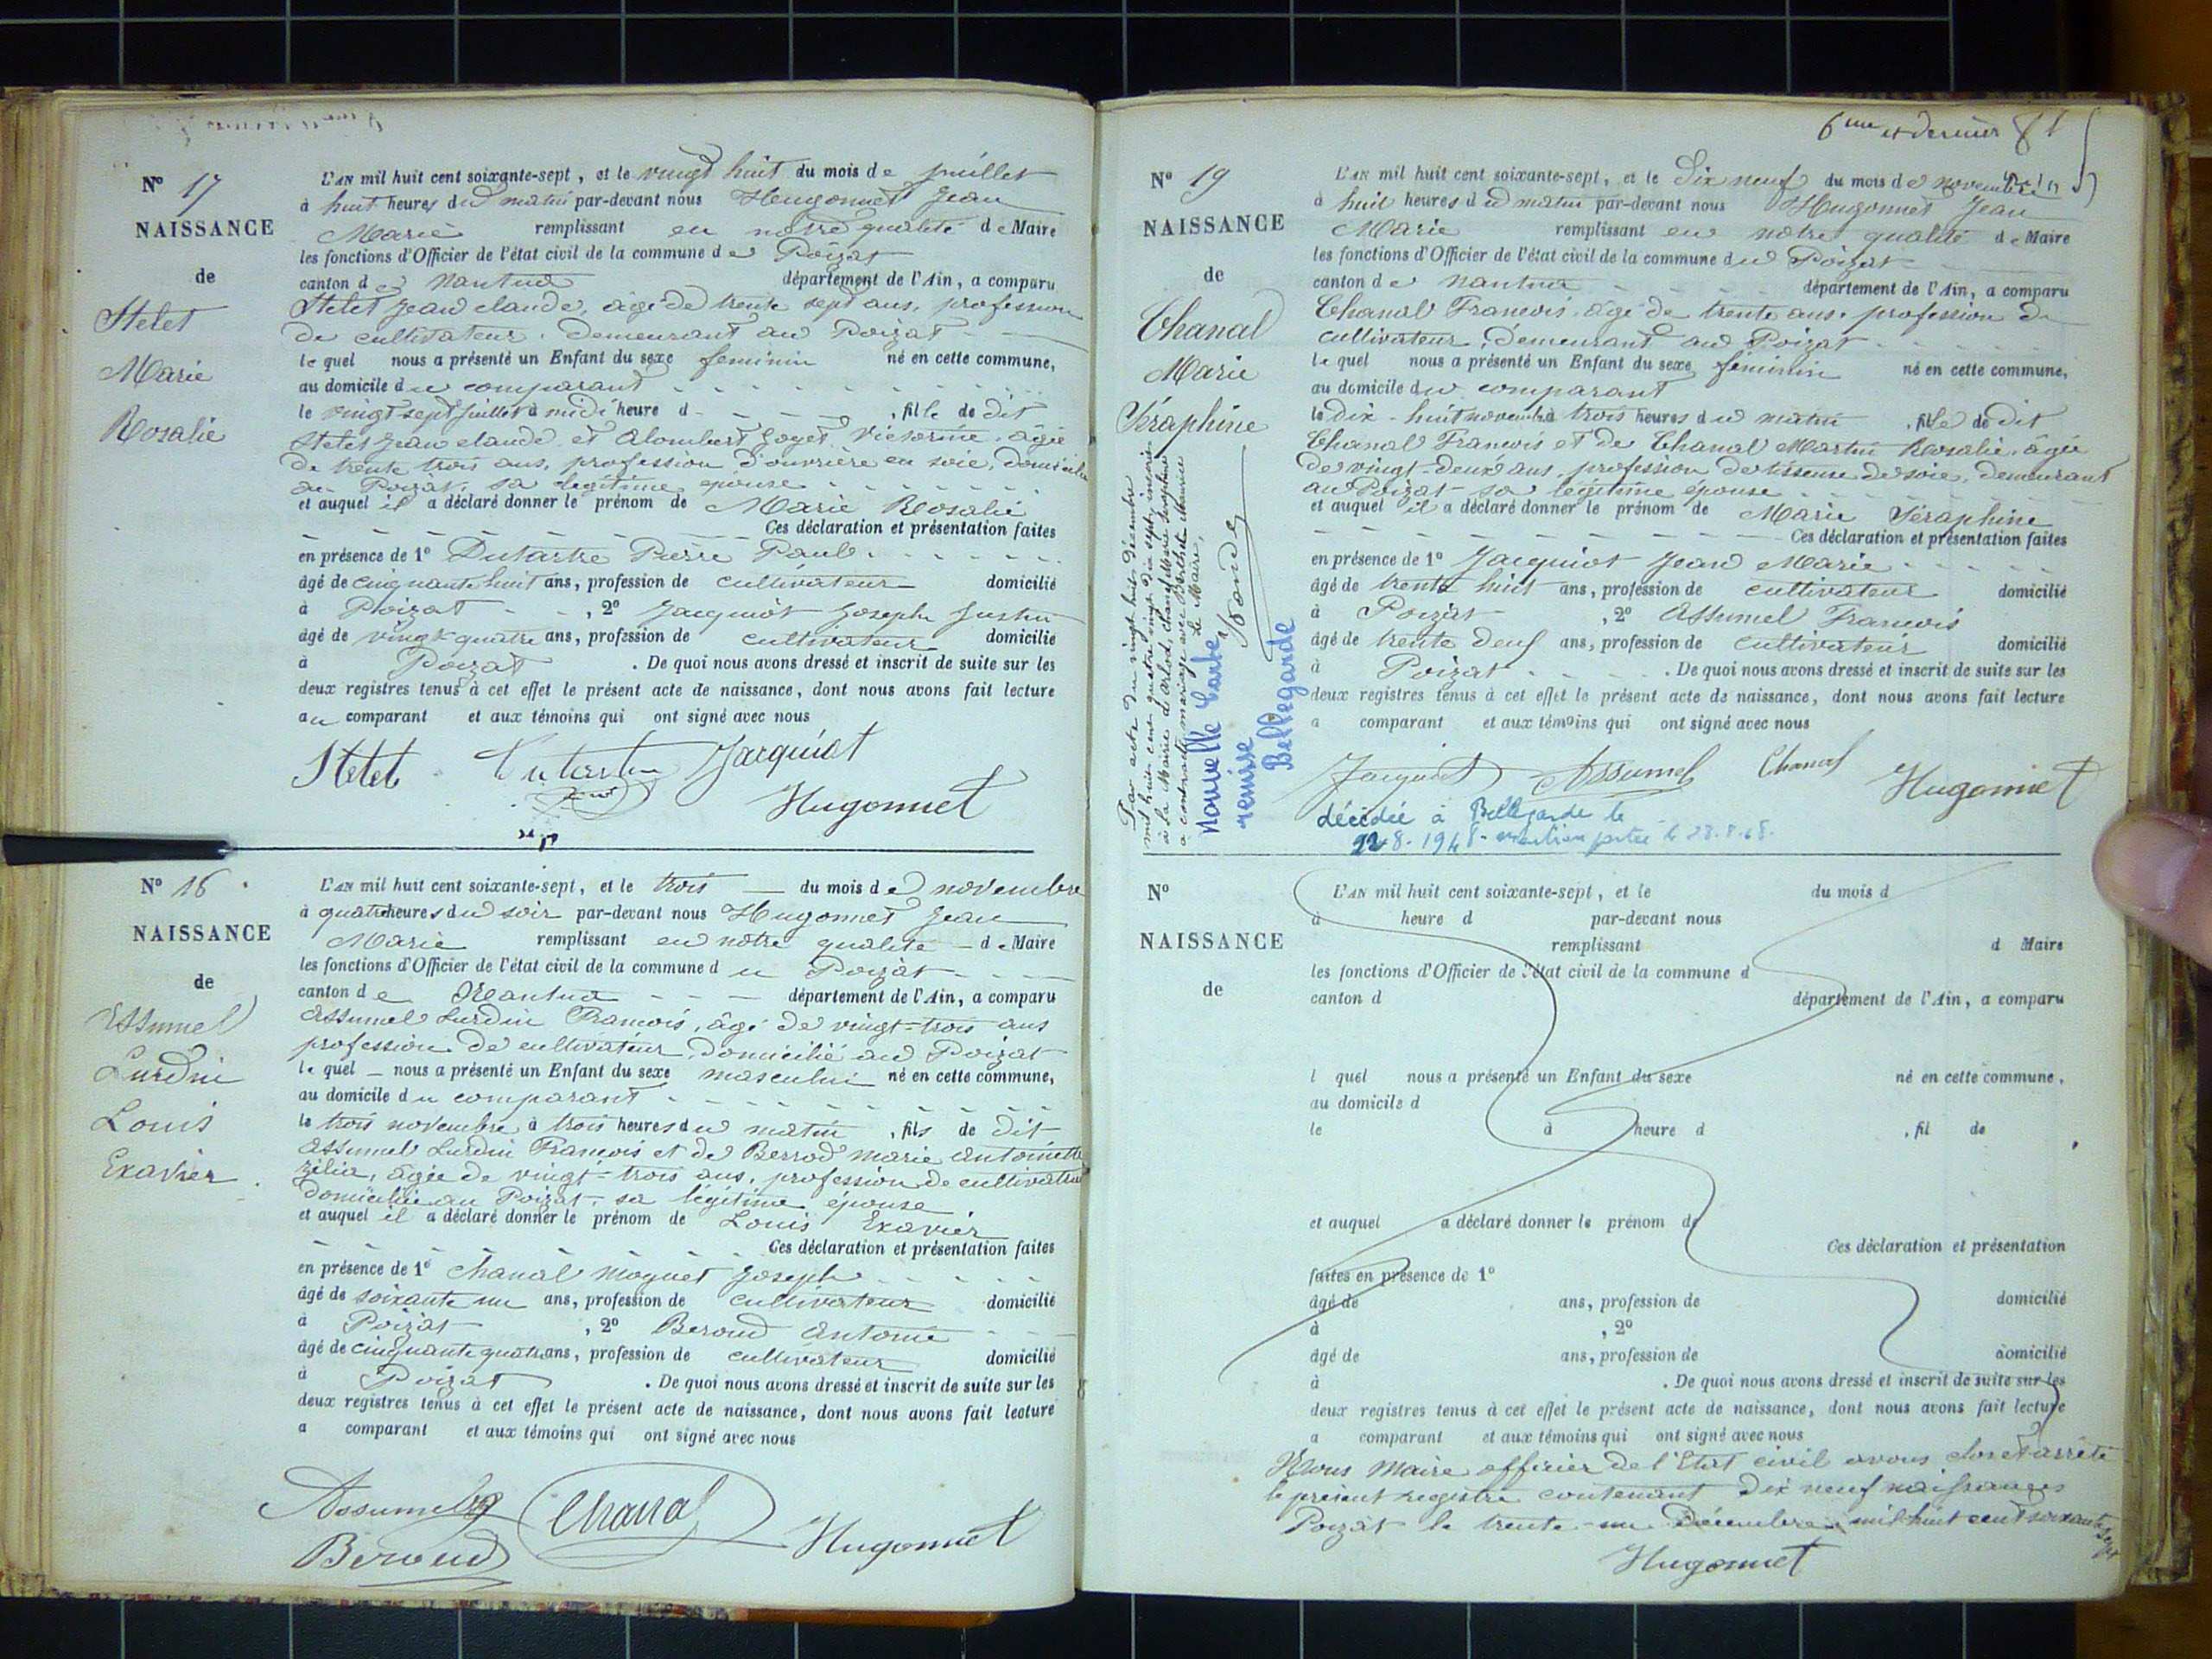 N° 17
NAISSANCE
de
Stelet
Marie
Rosalie
L'AN mil huit cent soixante-sept, et le vingt huit du mois de juillet
à huit heures du matin par-devant nous Hugonnet Jean
Marie remplissant en notre qualité de Maire
les fonctions d'Officier de l'état civil de la commune de Poizat
canton de Nantua département de l'Ain, a comparu
Stelet Jean claude, âgé de trente sept ans, profession
de cultivateur. demeurant au Poizat
lequel nous a présenté un Enfant du sexe feminin né en cette commune,
au domicile du comparant
le vingt sept juillet à midi heure d , fille de dit
Stelet Jean claude et Alombert Goget Victorine. âgée
de trente trois ans, profession d'ouvrière en soie, domiciliée
au Poizat, sa légitime épouse
et auquel il a déclaré donner le prénom de Marie Rosalie
Ces déclaration et présentation faites
en présence de 1° Dutartre Pierre Paul.
âgé de cinquante huit ans, profession de cultivateur domicilié
à Poizat, 2° Jacquiot Joseph Justin
âgé de vingt quatre ans, profession de cultivateur domicilié
à Poizat. De quoi nous avons dressé et inscrit de suite sur les
deux registres tenus à cet effet le présent acte de naissance, dont nous avons fait lecture
au comparant et aux témoins qui ont signé avec nous
Stelet Dutartre Jacquiot
Hugonnet
N° 16
NAISSANCE
de
Assumel
Lurdin
Louis
Exavier
L'AN mil huit cent soixante-sept, et le trois du mois de novembre
à quatre heures du soir par-devant nous Hugonnet Jean
Marie remplissant en notre qualité de Maire
les fonctions d'Officier de l'état civil de la commune du Poizat
canton de Nantua département de l'Ain, a comparu
Assumel Lurdin François, âgé de vingt-trois ans
profession de cultivateur, domicilié au Poizat
lequel nous a présenté un Enfant du sexe masculin né en cette commune,
au domicile du comparant
le trois novembre à trois heures du matin, fils de dit
Assumel Lurdin François et de Berrod marie antoinette
zélia, âgée de vingt-trois ans, profession de cultivatrice
domiciliée au Poizat, sa légitime épouse
et auquel il a déclaré donner le prénom de Louis Exavier
Ces déclaration et présentation faites
en présence de 1° Chanal Moguet Joseph
âgé de soixante un ans, profession de cultivateur domicilié
à Poizat, 2° Beroud Antoine
âgé de cinquante quatre ans, profession de cultivateur domicilié
à Poizat. De quoi nous avons dressé et inscrit de suite sur les
deux registres tenus à cet effet le présent acte de naissance, dont nous avons fait lecture
a comparant et aux témoins qui ont signé avec nous
Assumel Chanal
Beroud Hugonnet
6me et dernier
N° 19
NAISSANCE
de
Chanal
Marie
Séraphine
Par acte du vingt huit décembre
mil huit cent quatre vingt dix sept, inscrit
à la Mairie d'Arlod, Chanal Marie Séraphine
a contracté mariage avec Berthet Maurice
le Maire,
Nouvelle Carte
remise
Bellegarde
L'AN mil huit cent soixante-sept, et le Dix neuf du mois de novembre
à huit heures du matin par-devant nous Hugonnet Jean
Marie remplissant en notre qualité de Maire
les fonctions d'Officier de l'état civil de la commune du Poizat
canton de Nantua département de l'Ain, a comparu
Chanal François. âgé de trente ans. profession de
cultivateur, demeurant au Poizat
lequel nous a présenté un Enfant du sexe féminin né en cette commune,
au domicile du comparant
le dix-huit novembre à trois heures du matin, fille de dit
Chanal François et de Chanal Martin Rosalie. âgée
de vingt-deux ans, profession de tisseuse de soie, demeurant
au Poizat sa légitime épouse
et auquel il a déclaré donner le prénom de Marie Séraphine
Ces déclaration et présentation faites
en présence de 1° Jacquiot Jean Marie
âgé de trente huit ans, profession de cultivateur domicilié
à Poizat, 2° Assumel François
âgé de trente deux ans, profession de cultivateur domicilié
à Poizat. De quoi nous avons dressé et inscrit de suite sur les
deux registres tenus à cet effet le présent acte de naissance, dont nous avons fait lecture
a comparant et aux témoins qui ont signé avec nous
Jacquiot Assumel Chanal Hugonnet
décédée à Bellegarde le
22-8-1948- mention portée le 28.8.48.
N°
NAISSANCE
de
L'AN mil huit cent soixante-sept, et le du mois d
à heure d par-devant nous
remplissant d Maire
les fonctions d'Officier de l'état civil de la commune d
canton d département de l'Ain, a comparu
l quel nous a présenté un Enfant du sexe né en cette commune,
au domicile d
le à heure d , fil de
et auquel a déclaré donner le prénom de
Ces déclaration et présentation
faites en présence de 1°
âgé de ans, profession de domicilié
à , 2°
âgé de ans, profession de domicilié
à . De quoi nous avons dressé et inscrit de suite sur les
deux registres tenus à cet effet le présent acte de naissance, dont nous avons fait lecture
a comparant et aux témoins qui ont signé avec nous
Nous Maire officier de l'Etat civil avons clos et arrêté
le présent registre contenant Dix neuf naissances
Poizat le trente-un Décembre mil huit cent soixante sept
Hugonnet